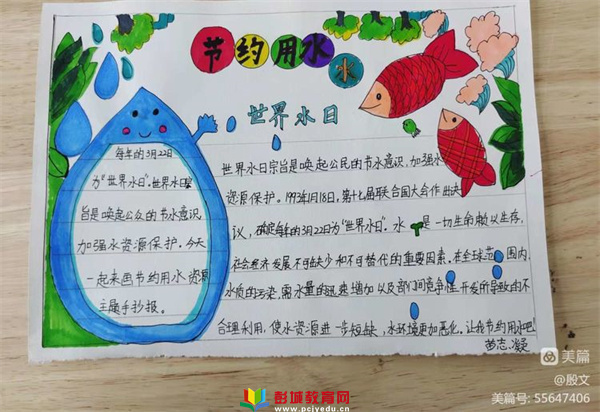 节约用水
水
世界水日
每年的3月22日
为“世界水日”.世界水日宗
旨是唤起公众的节水意识,
加强水资源保护。今天
一起来画节约用水资源
主题手抄报。
世界水日宗旨是唤起公民的节水意识,加强水
资源保护。1993年1月18日,第十七届联合国大会作出决
议,确定每年的3月22日为“世界水日”。水 是一切生命赖以生存,
社会经济发展不可缺少和不可替代的重要因素。在全球范围内,
水质的污染,需水量的迅速增加以及部门间竞争性开发所导致的不
合理利用,使水资源进一步短缺,水环境更加恶化。让我节约用水吧
苗志凝
美篇
@殷文
美篇号:55647406
彭城教育网
www.pcjyedu.cn